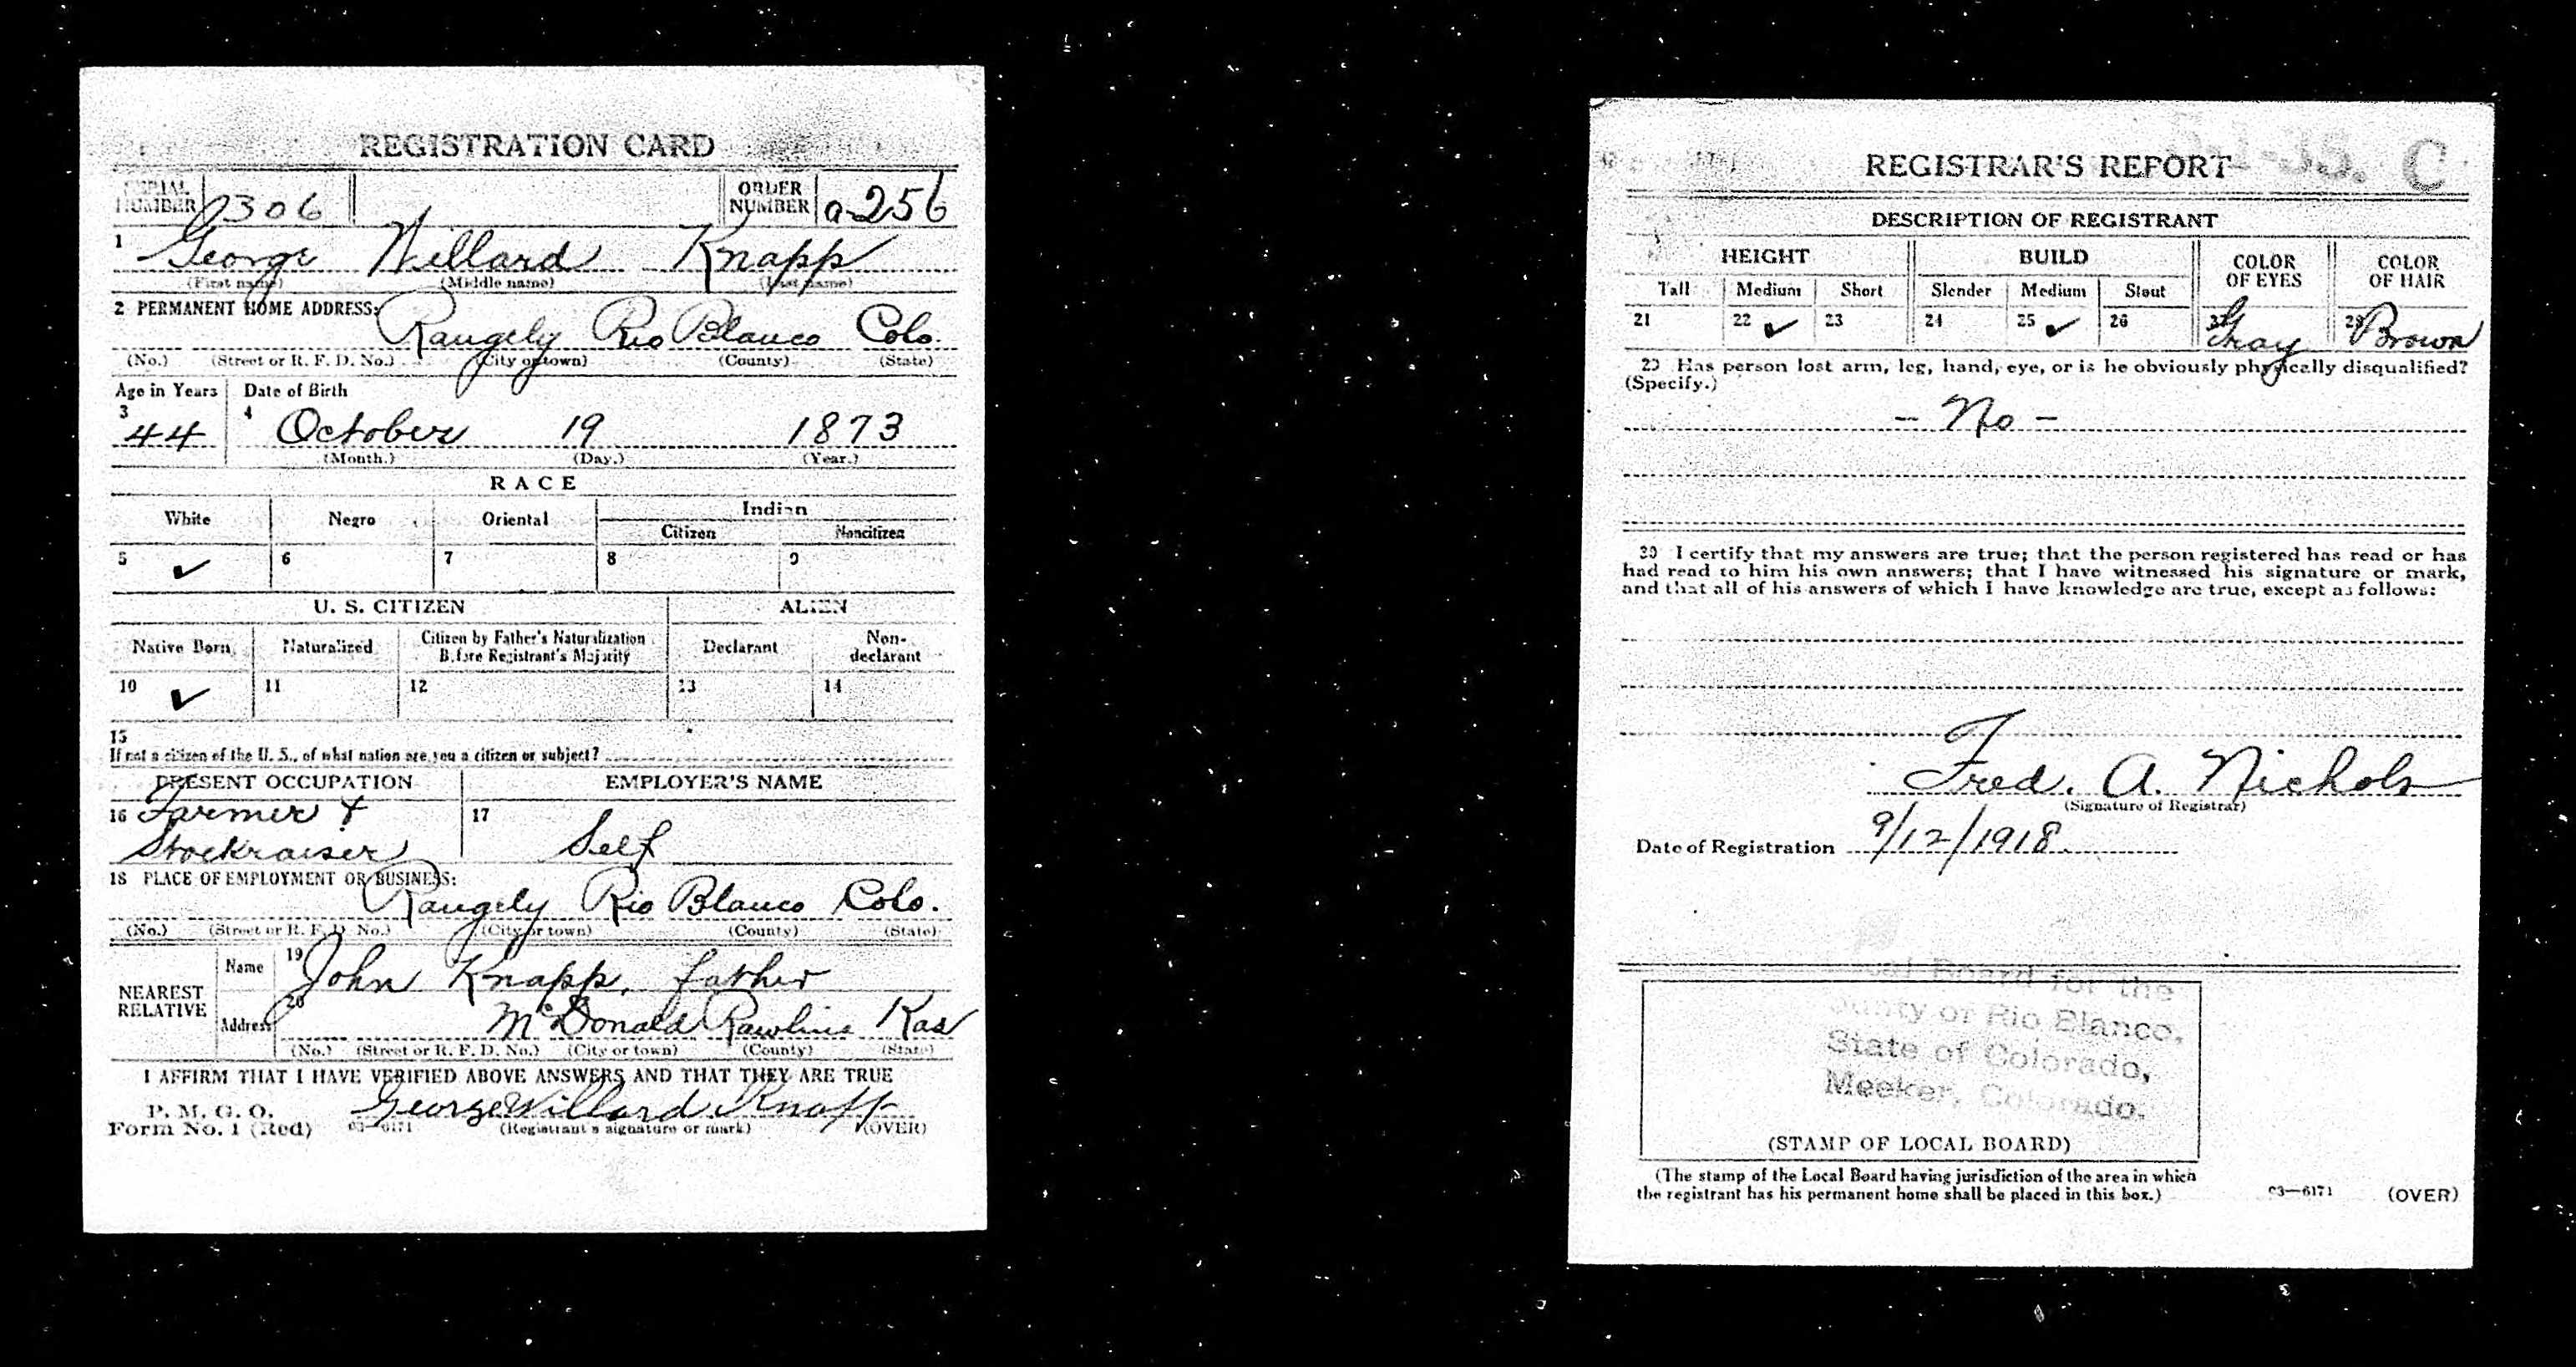 REGISTRATION CARD
SERIAL NUMBER 306 ORDER NUMBER a-256
1 George Willard Knapp
(First name) (Middle name) (Last name)
2 PERMANENT HOME ADDRESS:
Rangely Rio Blanco Colo.
(No.) (Street or R. F. D. No.) (City or town) (County) (State)
Age in Years Date of Birth
3 4
44 October 19 1873
(Month.) (Day.) (Year.)
RACE
White Negro Oriental Indian
Citizen Noncitizen
5 ✓ 6 7 8 9
U. S. CITIZEN ALIEN
Native Born Naturalized Citizen by Father's Naturalization Before Registrant's Majority Declarant Non-declarant
10 ✓ 11 12 13 14
15
If not a citizen of the U. S., of what nation are you a citizen or subject?
PRESENT OCCUPATION EMPLOYER'S NAME
16 Farmer & 17
Stockraiser Self
18 PLACE OF EMPLOYMENT OR BUSINESS:
Rangely Rio Blanco Colo.
(No.) (Street or R. F. D. No.) (City or town) (County) (State)
NEAREST RELATIVE
Name 19 John Knapp, father
Address 20 McDonald Rawlins Kas
(No.) (Street or R. F. D. No.) (City or town) (County) (State)
I AFFIRM THAT I HAVE VERIFIED ABOVE ANSWERS AND THAT THEY ARE TRUE
P. M. G. O.
Form No. 1 (Red) 03—6171 George Willard Knapp
(Registrant's signature or mark) (OVER)
C
REGISTRAR'S REPORT
DESCRIPTION OF REGISTRANT
HEIGHT BUILD COLOR OF EYES COLOR OF HAIR
Tall Medium Short Slender Medium Stout
21 22 ✓ 23 24 25 ✓ 26 27 Gray 28 Brown
29 Has person lost arm, leg, hand, eye, or is he obviously physically disqualified?
(Specify.)
- No -
30 I certify that my answers are true; that the person registered has read or has
had read to him his own answers; that I have witnessed his signature or mark,
and that all of his answers of which I have knowledge are true, except as follows:
Fred. A. Nichols
(Signature of Registrar)
Date of Registration 9/12/1918.
Board for the
County of Rio Blanco,
State of Colorado,
Meeker, Colorado.
(STAMP OF LOCAL BOARD)
(The stamp of the Local Board having jurisdiction of the area in which
the registrant has his permanent home shall be placed in this box.)
03—6171 (OVER)